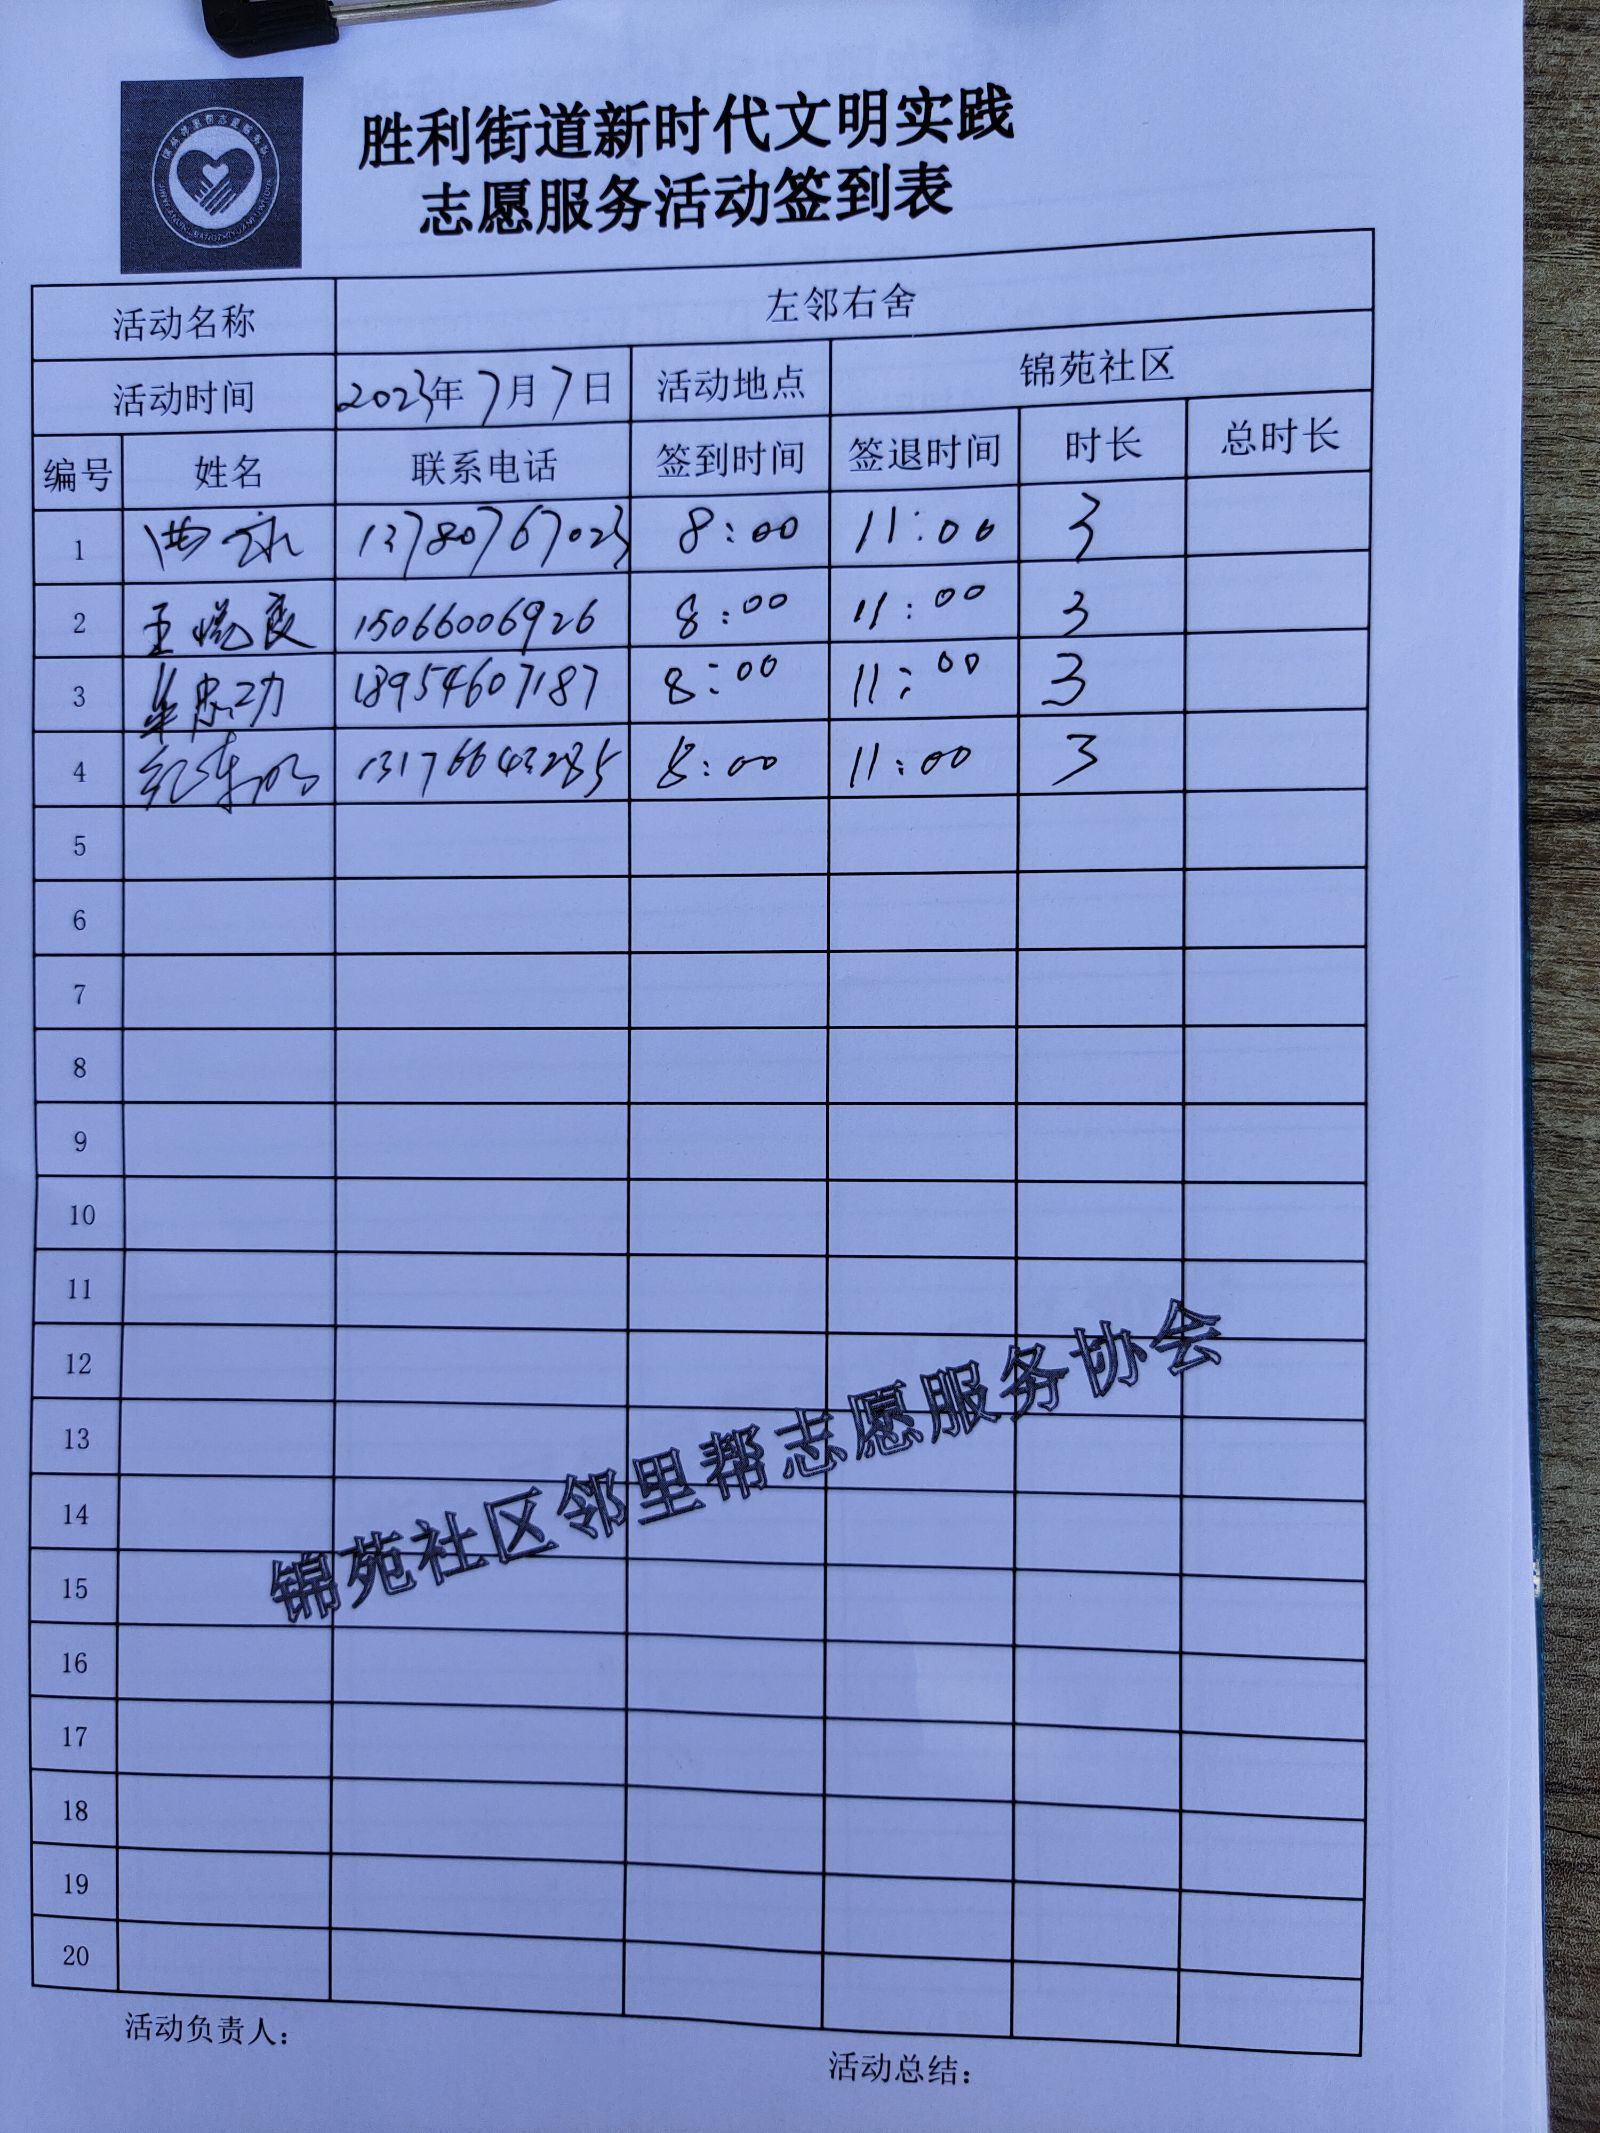 胜利街道新时代文明实践
志愿服务活动签到表
活动名称 左邻右舍
活动时间 2023年7月7日 活动地点 锦苑社区
编号 姓名 联系电话 签到时间 签退时间 时长 总时长
1 13780767023 8:00 11:00 3
2 15066006926 8:00 11:00 3
3 18954607187 8:00 11:00 3
4 13176643285 8:00 11:00 3
5
6
7
8
9
10
11
12
13
14
15
16
17
18
19
20
锦苑社区邻里帮志愿服务协会
活动负责人：
活动总结：